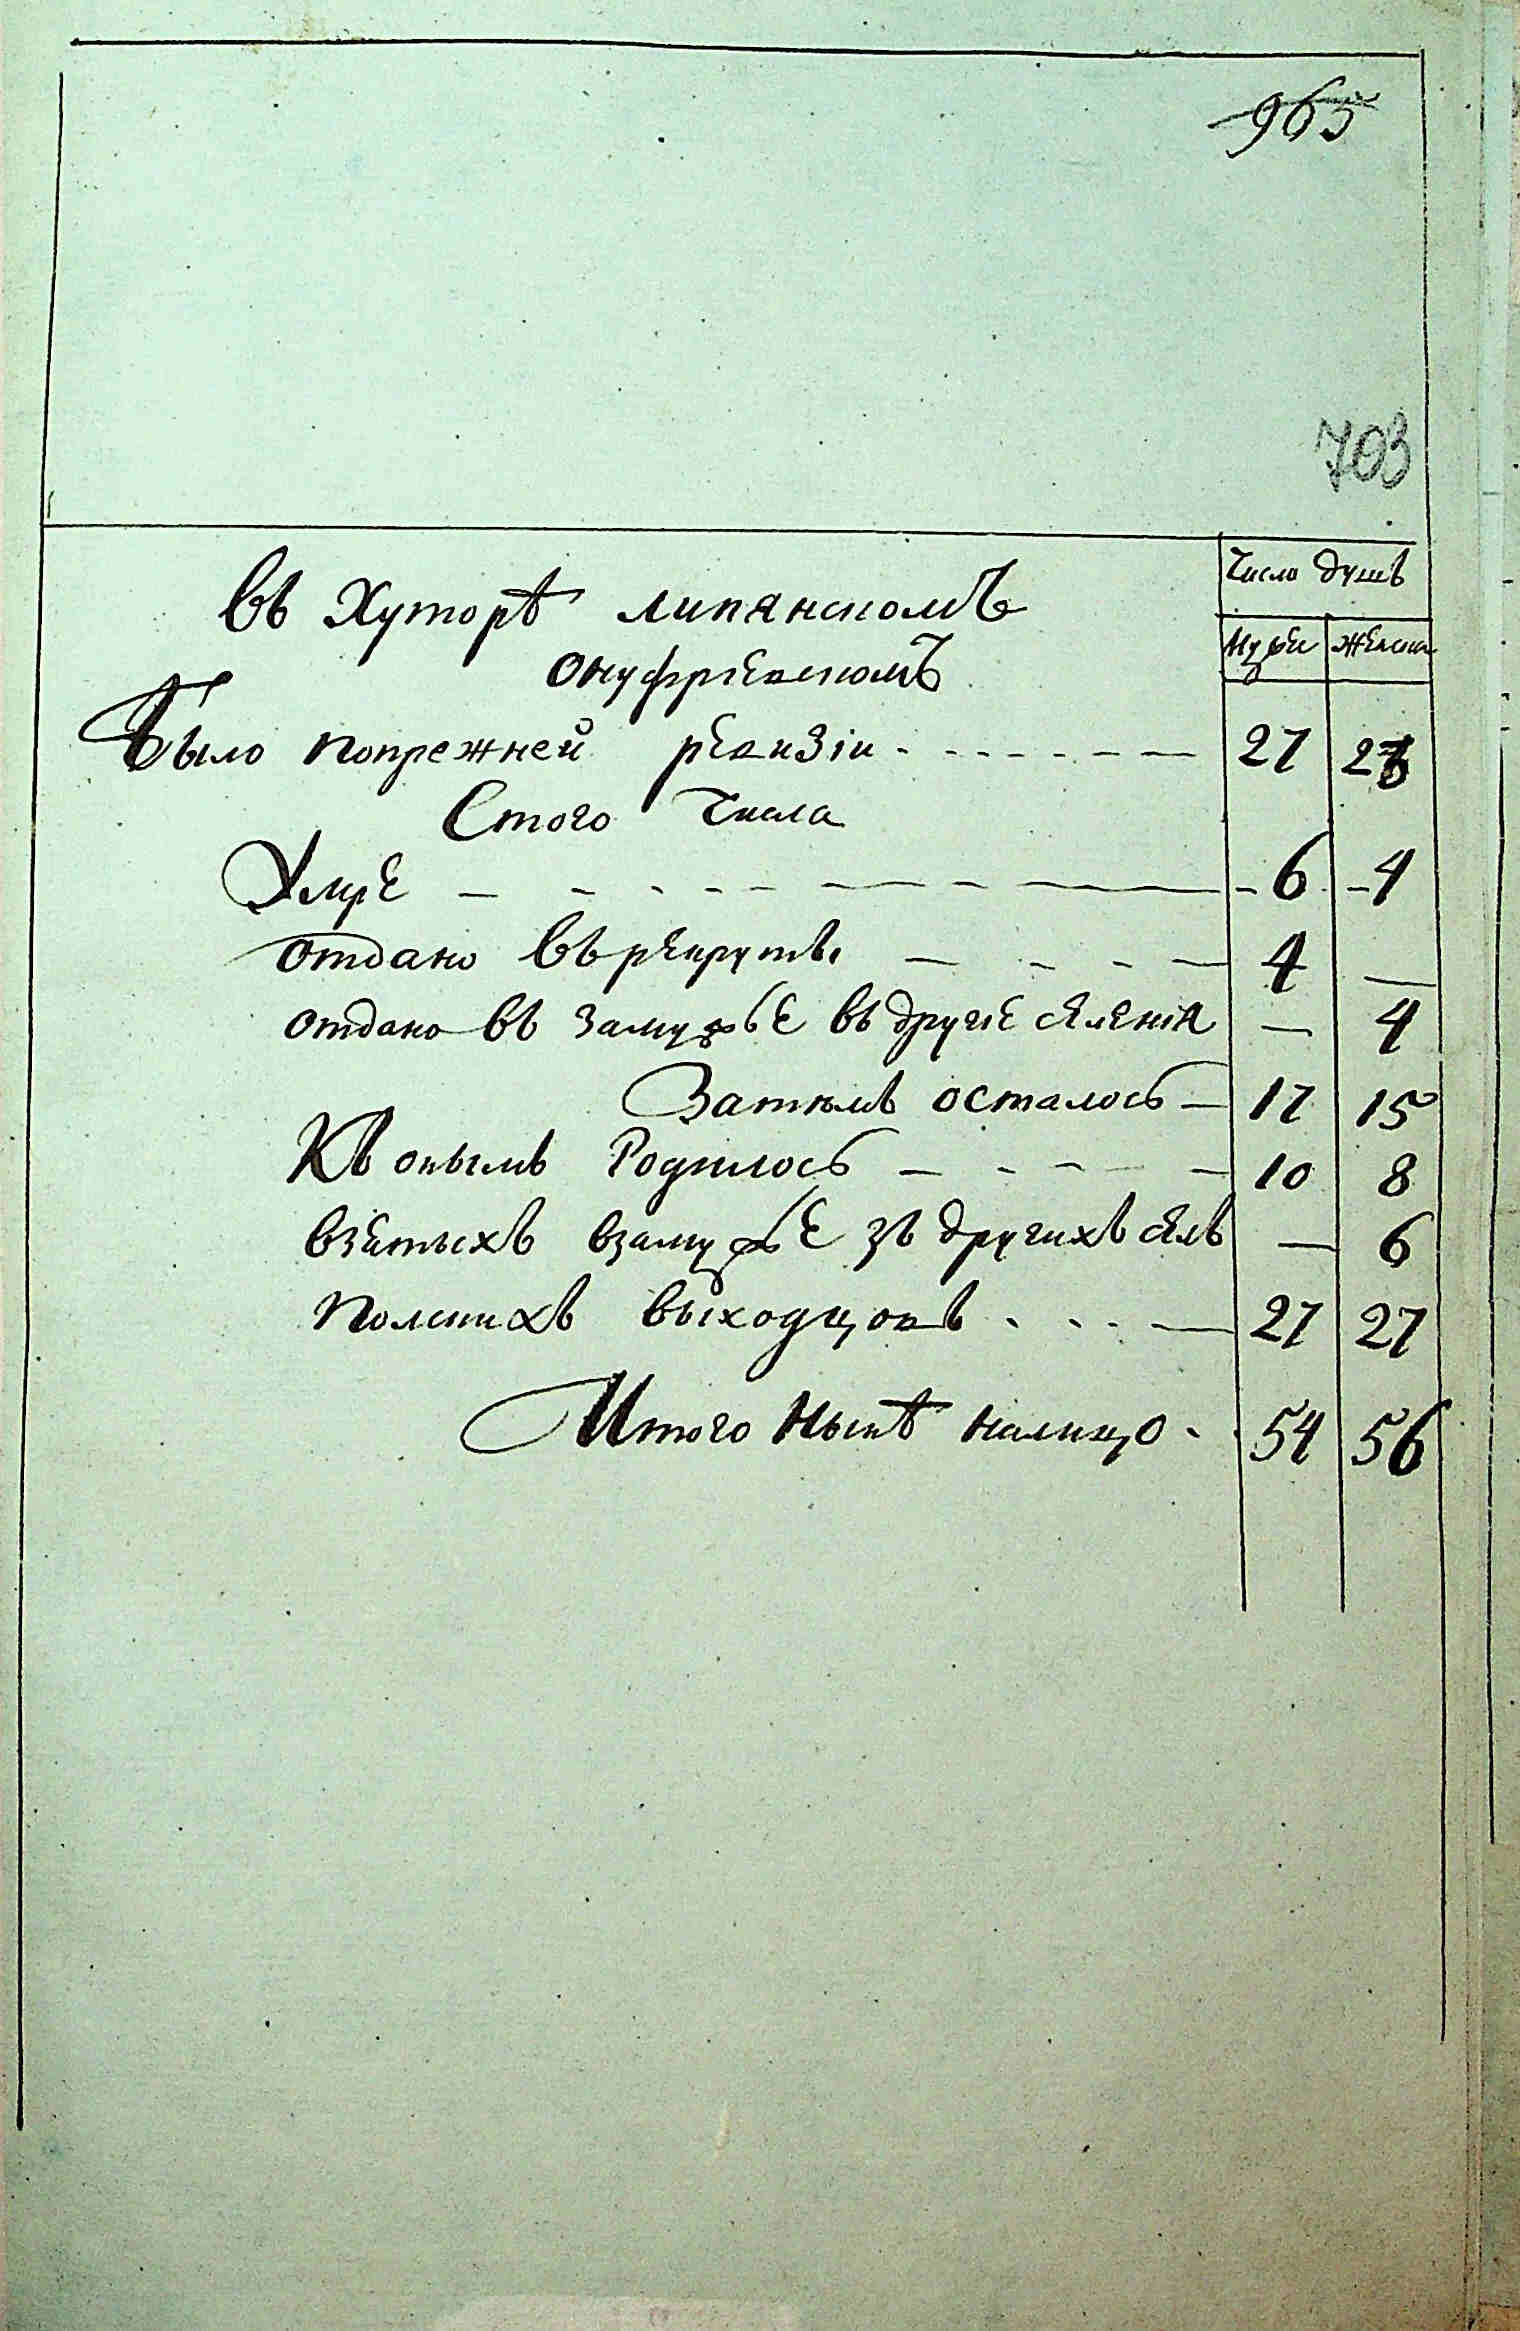 965
703
Число душъ
Мужеск Женска
Въ Хуторѣ липянскомъ
онуфриевскомъ
Было попрежней ревизіи 27 23
Стого числа
Умре 6 4
отдано въ рекруты 4 —
отдано въ замужье въ другіе селенія — 4
Затемъ осталось 17 15
Къ онымъ Родилось 10 8
взятыхъ взамужье зъ другихъ селъ — 6
Полскихъ выходцовъ 27 27
Итого нынѣ налицо 54 56